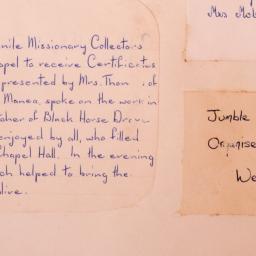 nile Missionary Collectors
apel to receive Certificates
presented by Mrs. Thom of
Manea, spoke on the work in
cher of Black Horse Drove
enjoyed by all, who filled
Chapel Hall. In the evening
ch helped to bring the
live.
Mrs Mob
Jumble
Organise
We